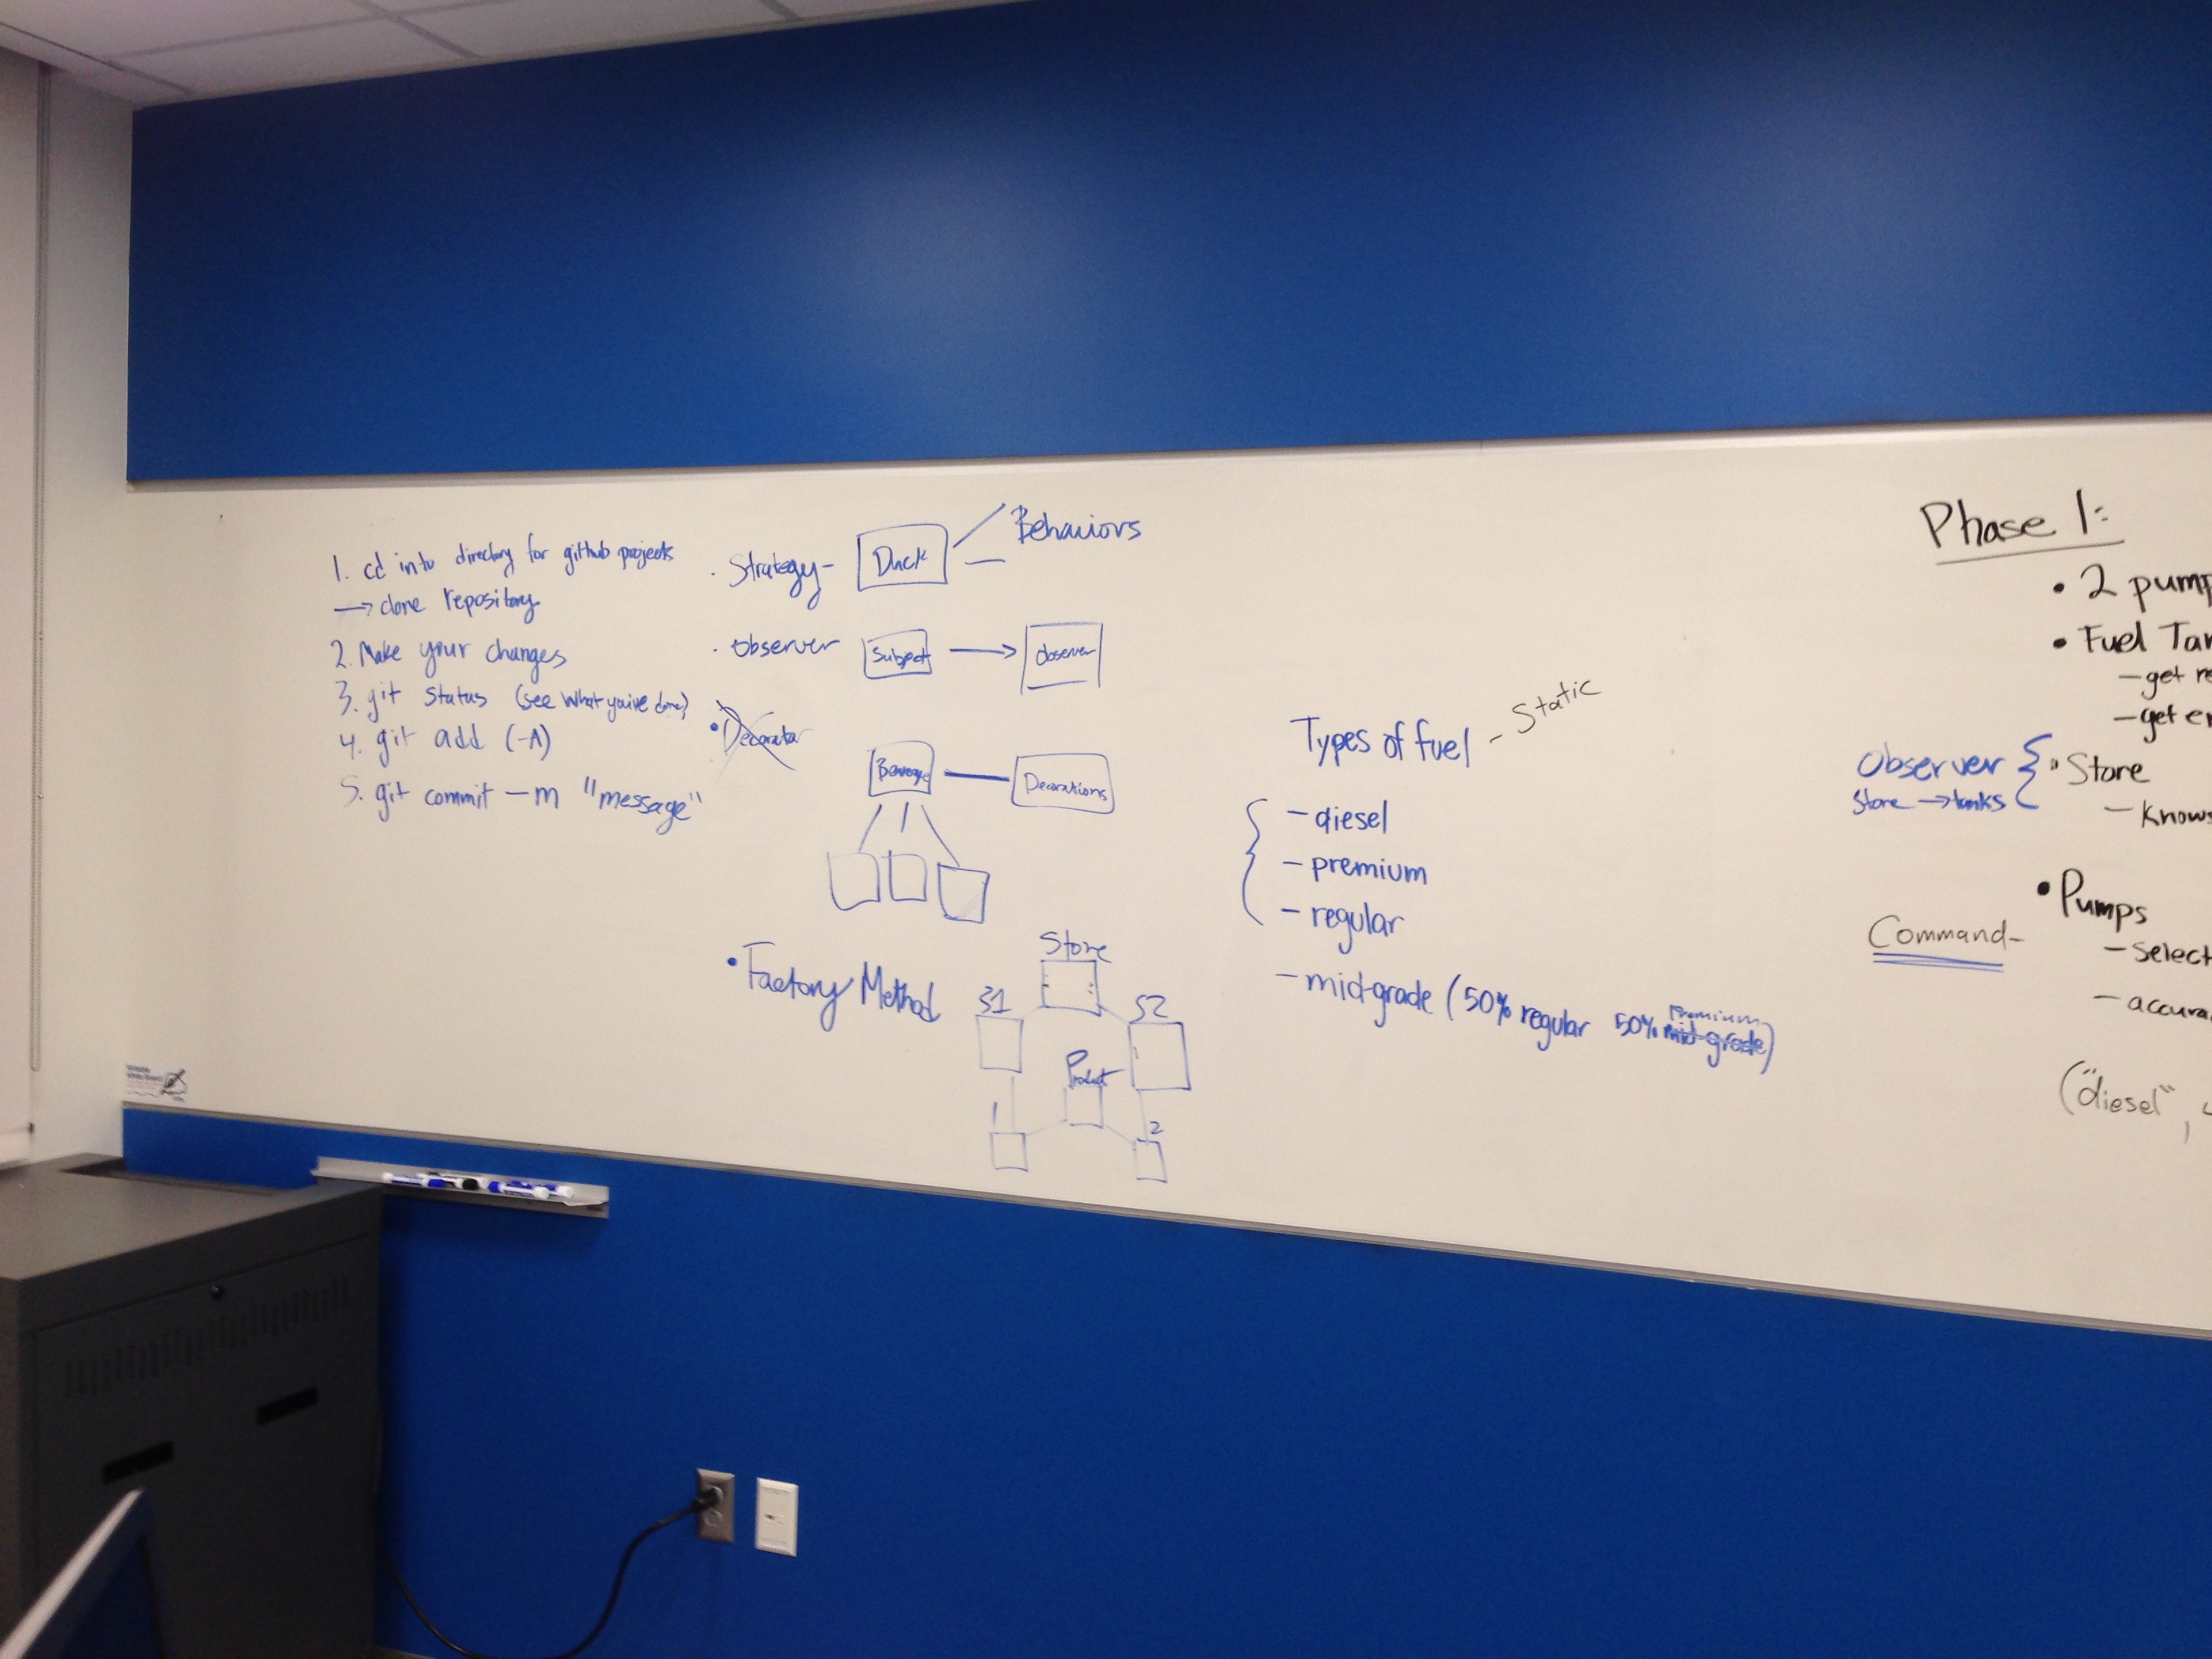 1. cd into directory for github projects
→ clone repository
2. Make your changes
3. git status (see what you've done)
4. git add (-A)
5. git commit -m "message"
· Strategy- Duck Behaviors
· Observer Subject → Observer
• Decorator
Beverage Decorations
• Factory Method
Store
S1 S2
Product
1 2
Types of fuel - Static
- diesel
- premium
- regular
- mid-grade (50% regular 50% mid-grade)
Premium
Phase 1:
• 2 pump
• Fuel Tan
- get re
- get e
Observer { • Store
Store → tanks
- Knows
• Pumps
Command-
- select
- accura
("diesel",